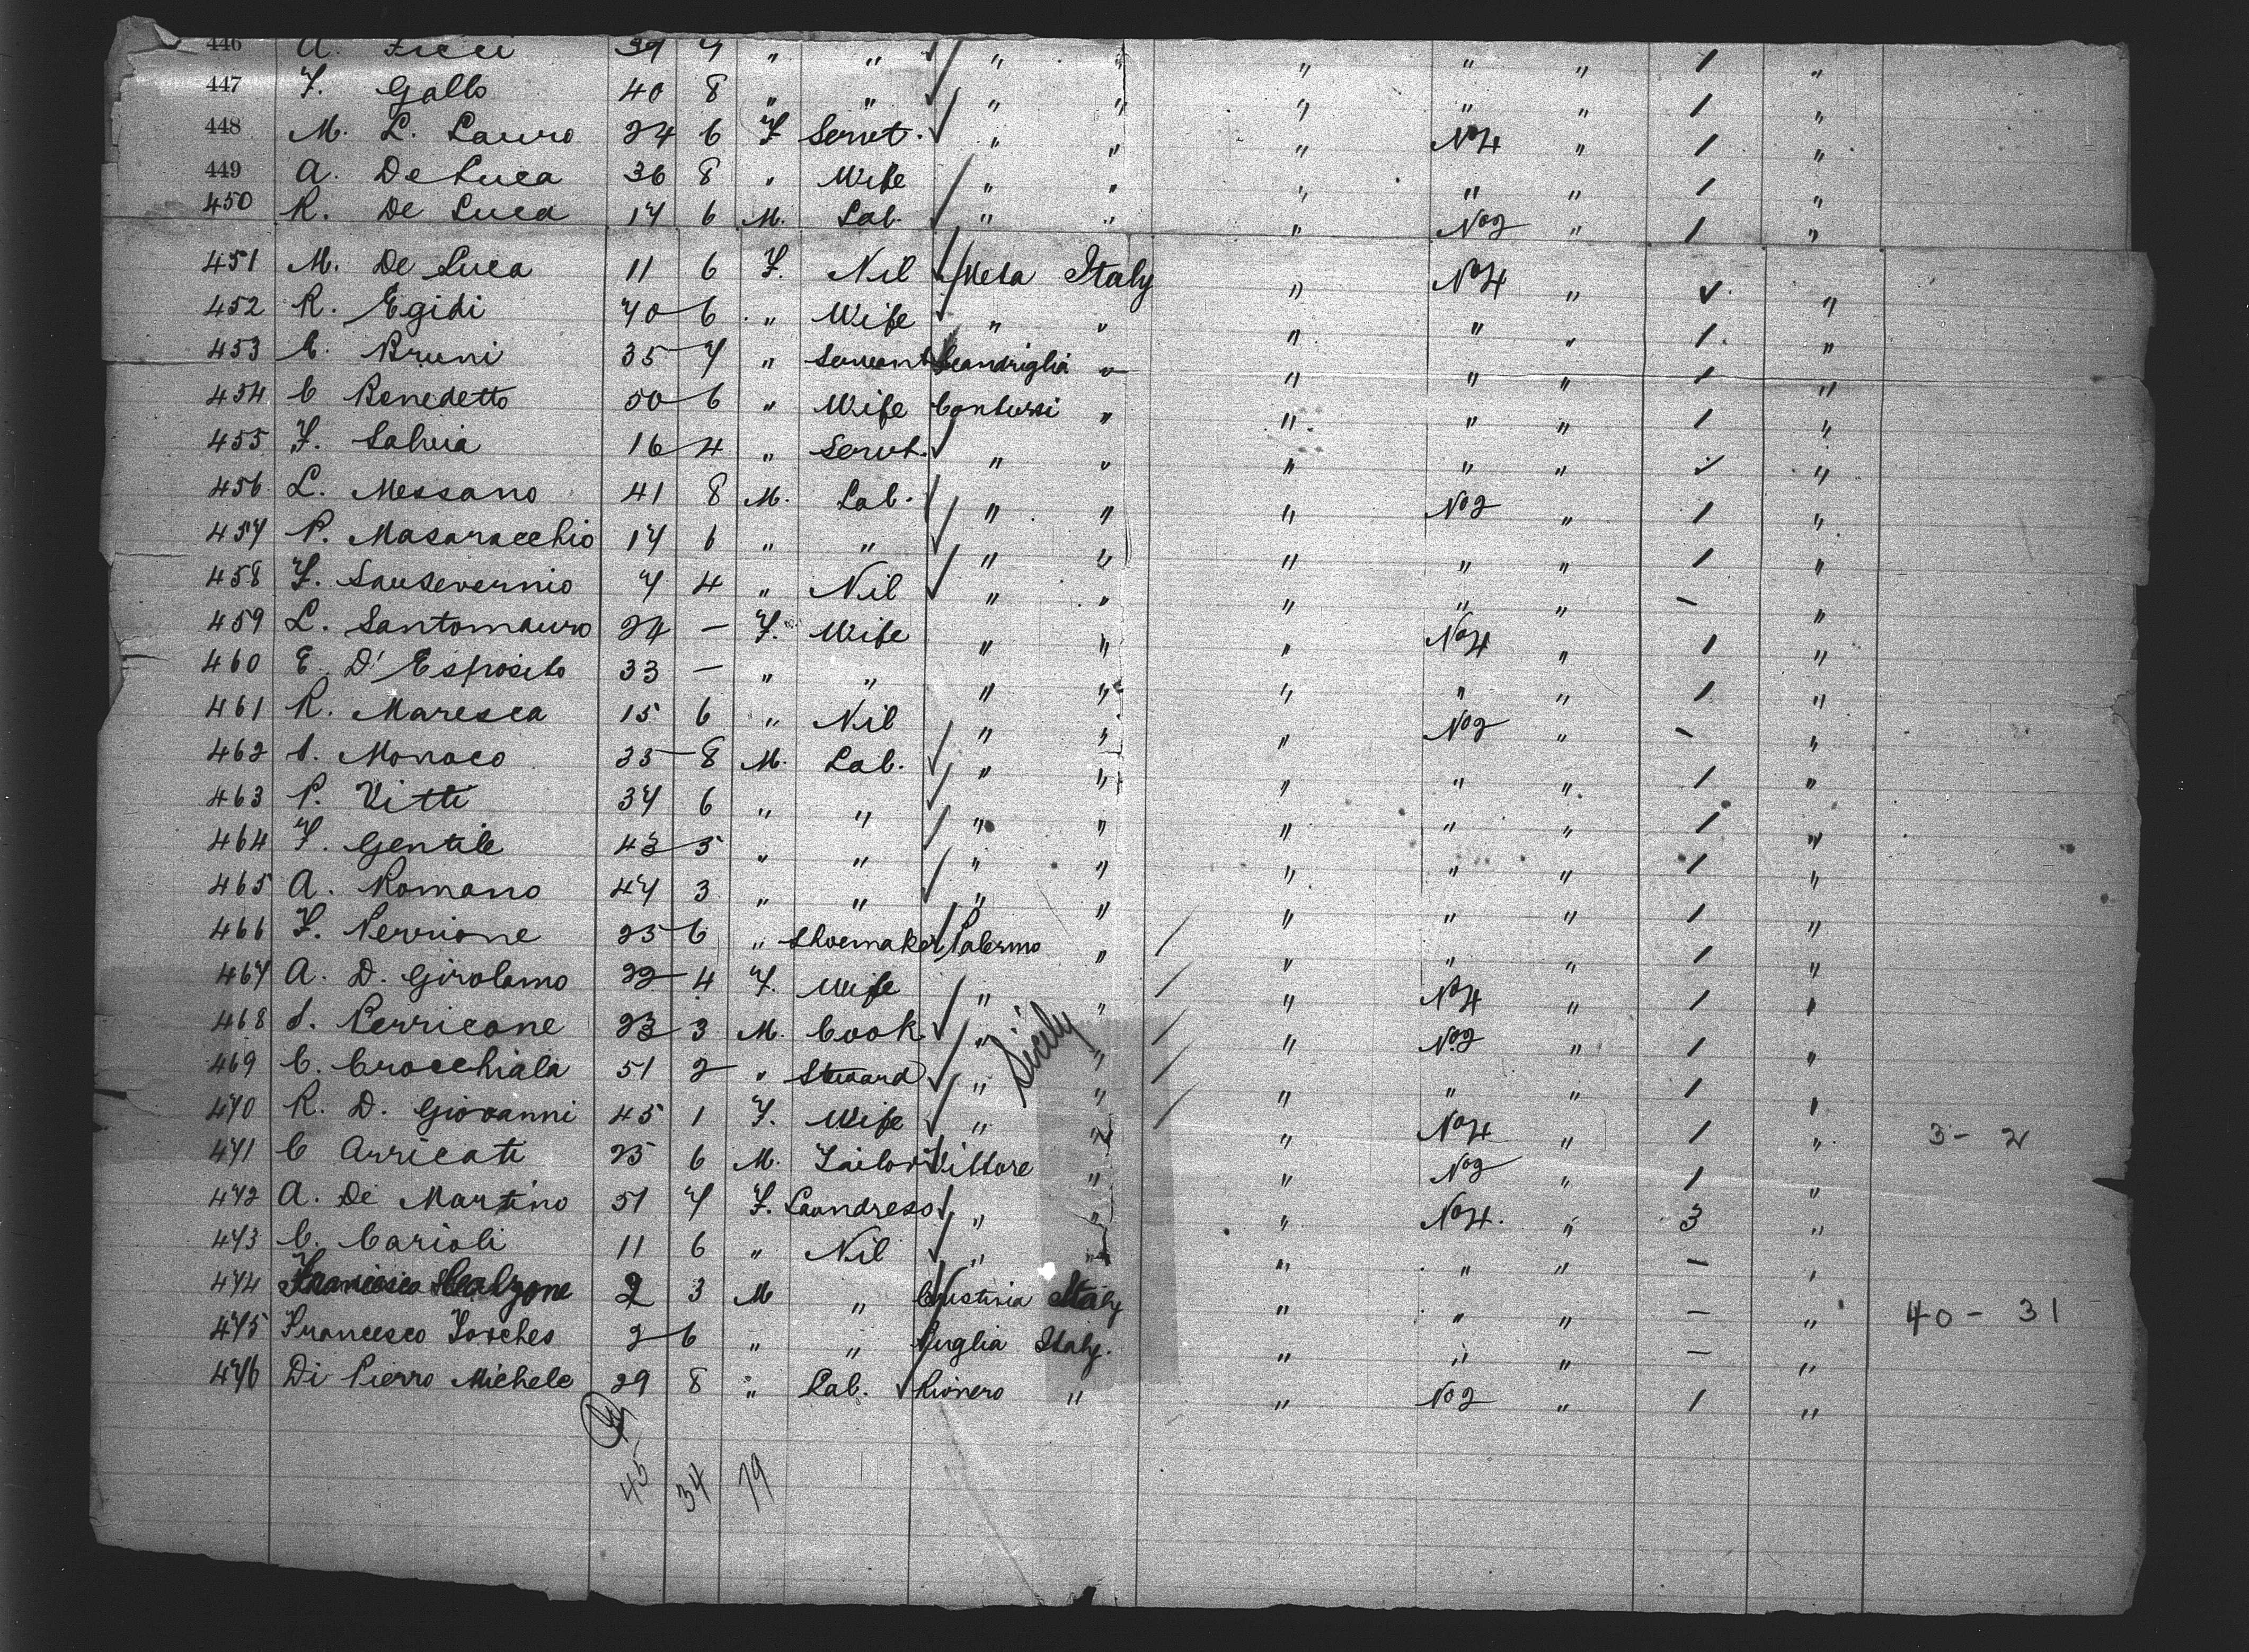 446 A. Ricci 37 7 " " " " " " " 1 "
447 F. Gallo 40 8 " " " " " " " 1 "
448 M. L. Lauro 24 6 F Servt. " " " No 4 " 1 "
449 A. De Luca 36 8 " Wife " " " " " 1 "
450 R. De Luca 17 6 M. Lab. " " " No 2 " 1 "
451 M. De Luca 11 6 F. Nil Meta Italy " No 4 " ✓ "
452 R. Egidi 40 6 " Wife " " " " " 1 "
453 C. Bruni 35 7 " Servant Scandriglia " " " " 1 "
454 C Benedetto 50 6 " Wife Contursi " " " " 1 "
455 F. Salvia 16 4 " Servt. " " " " " ✓ "
456 L. Messano 41 8 M. Lab. " " " No 2 " 1 "
457 P. Masaracchio 17 6 " " " " " " " 1 "
458 F. Sausevernio 7 4 " Nil " " " " " - "
459 L. Santomauro 24 - F. Wife " " " No 4 " 1 "
460 E. D'Esposito 33 - " " " " " " " 1 "
461 R. Maresca 15 6 " Nil " " " No 2 " - "
462 S. Monaco 35 8 M. Lab. " " " " " 1 "
463 P. Vitti 37 6 " " " " " " " 1 "
464 F. Gentile 43 5 " " " " " " " 1 "
465 A. Romano 47 3 " " " " " " " 1 "
466 F. Perrione 25 6 " Shoemaker Palermo " " " " 1 "
467 A. D. Girolamo 22 4 F. Wife " " " No 4 " 1 "
468 S. Perricone 23 3 M. Cook " Sicily " " No 2 " 1 "
469 C. Crocchiala 51 2 " Steward " " " " " 1 "
470 R. D. Giovanni 45 1 F. Wife " " " No 4 " 1 " 3 - 2
471 C Arricati 25 6 M. Tailor Vittore " " No 2 " 1 "
472 A. De Martino 51 7 F. Laundress " " " No 4. " 3 "
473 C. Carioli 11 6 " Nil " " " " " - "
474 2 3 M " Italy " " " - " 40 - 31
475 Francesco Torches 2 6 " " Puglia Italy. " " " - "
476 Di Pierro Michele 29 8 " Lab. Rionero " " No 2 " 1 "
45 34 79